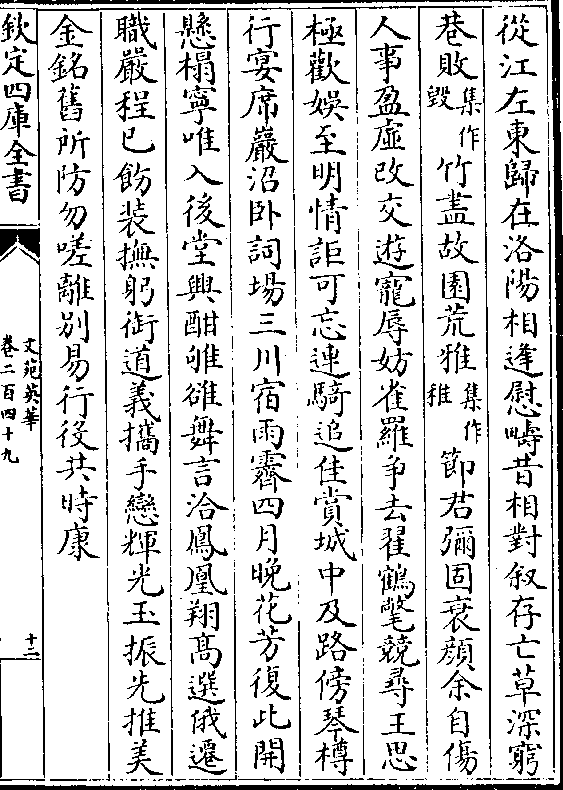 從江左東歸在洛陽相逢慰疇昔相對叙存亡草深窮
巷敗集作毀竹盡故園荒雅集作稚節君彌固衰顔余自傷
人事盈虛改交遊寵辱妨雀羅爭去翟鶴氅競尋王思
極歡娛至明情詎可忘連騎追佳賞城中及路傍琴樽
行宴席巖沼卧詞塲三川宿雨霽四月晚花芳復此開
懸榻寧唯入後堂興酣鴝鵒舞言洽鳳凰翔髙選俄遷
職嚴程已飭装撫躬銜道義攜手戀輝光玉振先推美
金銘舊所防勿嗟離别易行役共時康
欽定四庫全書
文苑英華
卷二百四十九
十二